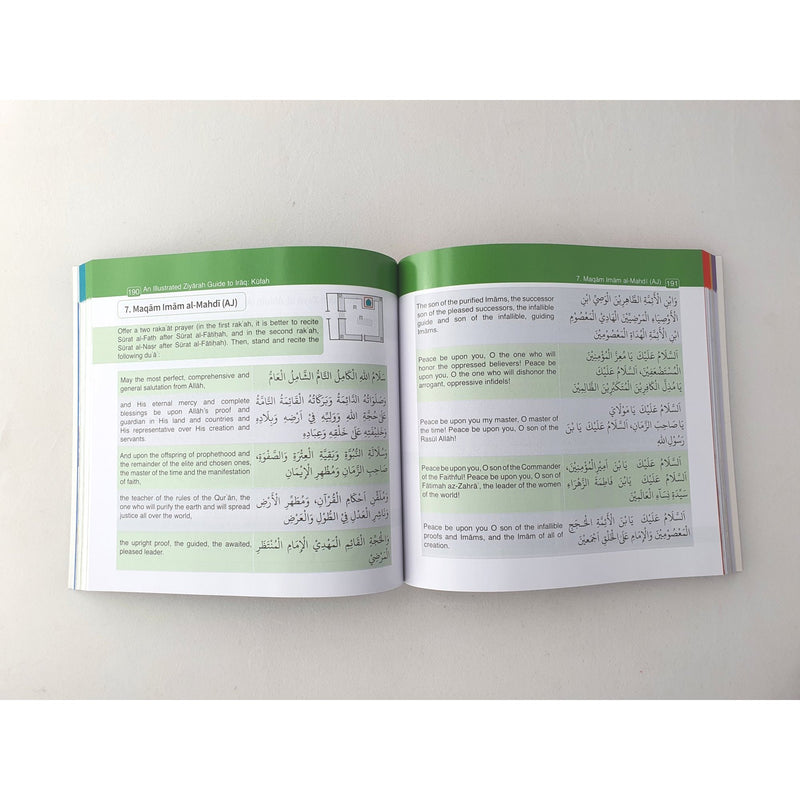 190 An Illustrated Ziyārah Guide to Irāq: Kūfah
7. Maqām Imām al-Mahdī (AJ)
Offer a two rakaʿāt prayer (in the first rakʿah, it is better to recite
Sūrat al-Fatḥ after Sūrat al-Fātiḥah, and in the second rakʿah,
Sūrat al-Naṣr after Sūrat al-Fātiḥah). Then, stand and recite the
following duʿāʾ:
May the most perfect, comprehensive and
general salutation from Allāh,
سَلَامُ اللهِ الْكَامِلُ التَّامُّ الشَّامِلُ الْعَامُّ
and His eternal mercy and complete
blessings be upon Allāh's proof and
guardian in His land and countries and
His representative over His creation and
servants.
وَصَلَوَاتُهُ الدَّائِمَةُ وَبَرَكَاتُهُ الْقَائِمَةُ التَّامَّةُ
عَلَى حُجَّةِ اللهِ وَوَلِيِّهِ فِي أَرْضِهِ وَبِلَادِهِ
وَخَلِيفَتِهِ عَلَى خَلْقِهِ وَعِبَادِهِ
And upon the offspring of prophethood and
the remainder of the elite and chosen ones,
the master of the time and the manifestation
of faith,
وَسُلَالَةِ النُّبُوَّةِ وَبَقِيَّةِ الْعِتْرَةِ وَالصَّفْوَةِ،
صَاحِبِ الزَّمَانِ وَمُظْهِرِ الْإِيْمَانِ
the teacher of the rules of the Qurʾān, the
one who will purify the earth and will spread
justice all over the world,
وَمُلَقِّنِ أَحْكَامِ الْقُرْآنِ، وَمُطَهِّرِ الْأَرْضِ
وَنَاشِرِ الْعَدْلِ فِي الطُّوْلِ وَالْعَرْضِ
the upright proof, the guided, the awaited,
pleased leader.
وَالْحُجَّةِ الْقَائِمِ الْمَهْدِيِّ الْإِمَامِ الْمُنْتَظَرِ
الْمَرْضِيِّ
7. Maqām Imām al-Mahdī (AJ) 191
The son of the purified Imams, the successor
son of the pleased successors, the infallible
guide and son of the infallible, guiding
Imāms.
وَابْنِ الْأَئِمَّةِ الطَّاهِرِيْنَ الْوَصِيِّ ابْنِ
الْأَوْصِيَاءِ الْمَرْضِيِّيْنَ الْهَادِي الْمَعْصُوْمِ
ابْنِ الْأَئِمَّةِ الْهُدَاةِ الْمَعْصُوْمِيْنَ
Peace be upon you, O the one who will
honor the oppressed believers! Peace be
upon you, O the one who will dishonor the
arrogant, oppressive infidels!
اَلسَّلَامُ عَلَيْكَ يَا مُعِزَّ الْمُؤْمِنِيْنَ
الْمُسْتَضْعَفِيْنَ، اَلسَّلَامُ عَلَيْكَ
يَا مُذِلَّ الْكَافِرِيْنَ الْمُتَكَبِّرِيْنَ الظَّالِمِيْنَ
Peace be upon you my master, O master of
the time! Peace be upon you, O son of the
Rasūl Allāh!
اَلسَّلَامُ عَلَيْكَ يَا مَوْلَايَ
يَا صَاحِبَ الزَّمَانِ، اَلسَّلَامُ عَلَيْكَ يَا ابْنَ
رَسُوْلِ اللهِ
Peace be upon you, O son of the Commander
of the Faithful! Peace be upon you, O son of
Fāṭimah az-Zahrāʾ, the leader of the women
of the world!
اَلسَّلَامُ عَلَيْكَ يَا بْنَ أَمِيْرِ الْمُؤْمِنِيْنَ،
اَلسَّلَامُ عَلَيْكَ يَا بْنَ فَاطِمَةَ الزَّهْرَاءِ
سَيِّدَةِ نِسَآءِ الْعَالَمِيْنَ
Peace be upon you O son of the infallible
proofs and Imāms, and the Imām of all of
creation.
اَلسَّلَامُ عَلَيْكَ يَابْنَ الْأَئِمَّةِ الْحُجَجِ
الْمَعْصُوْمِيْنَ وَالْإِمَامِ عَلَى الْخَلْقِ أَجْمَعِيْنَ